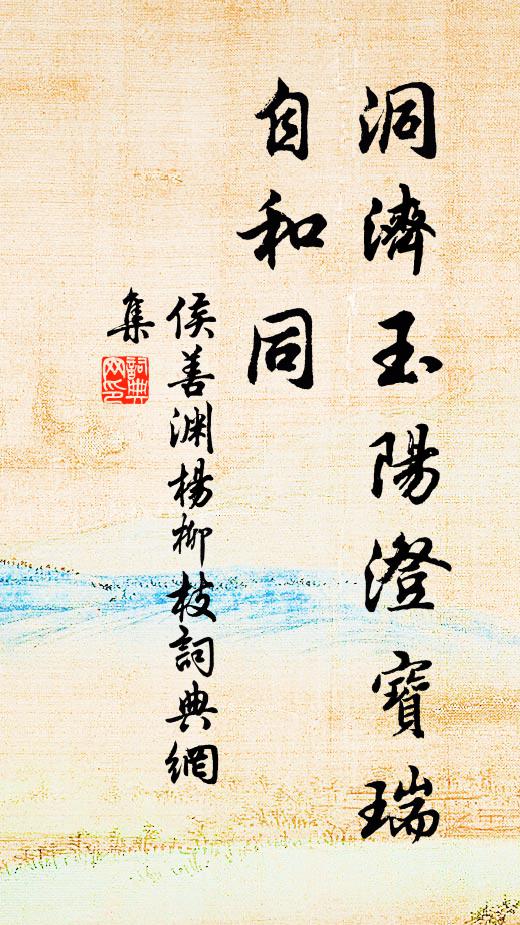 洞濟玉陽澄寶瑞
自和同
侯善渊楊柳枝詞典網
集
詞典網印